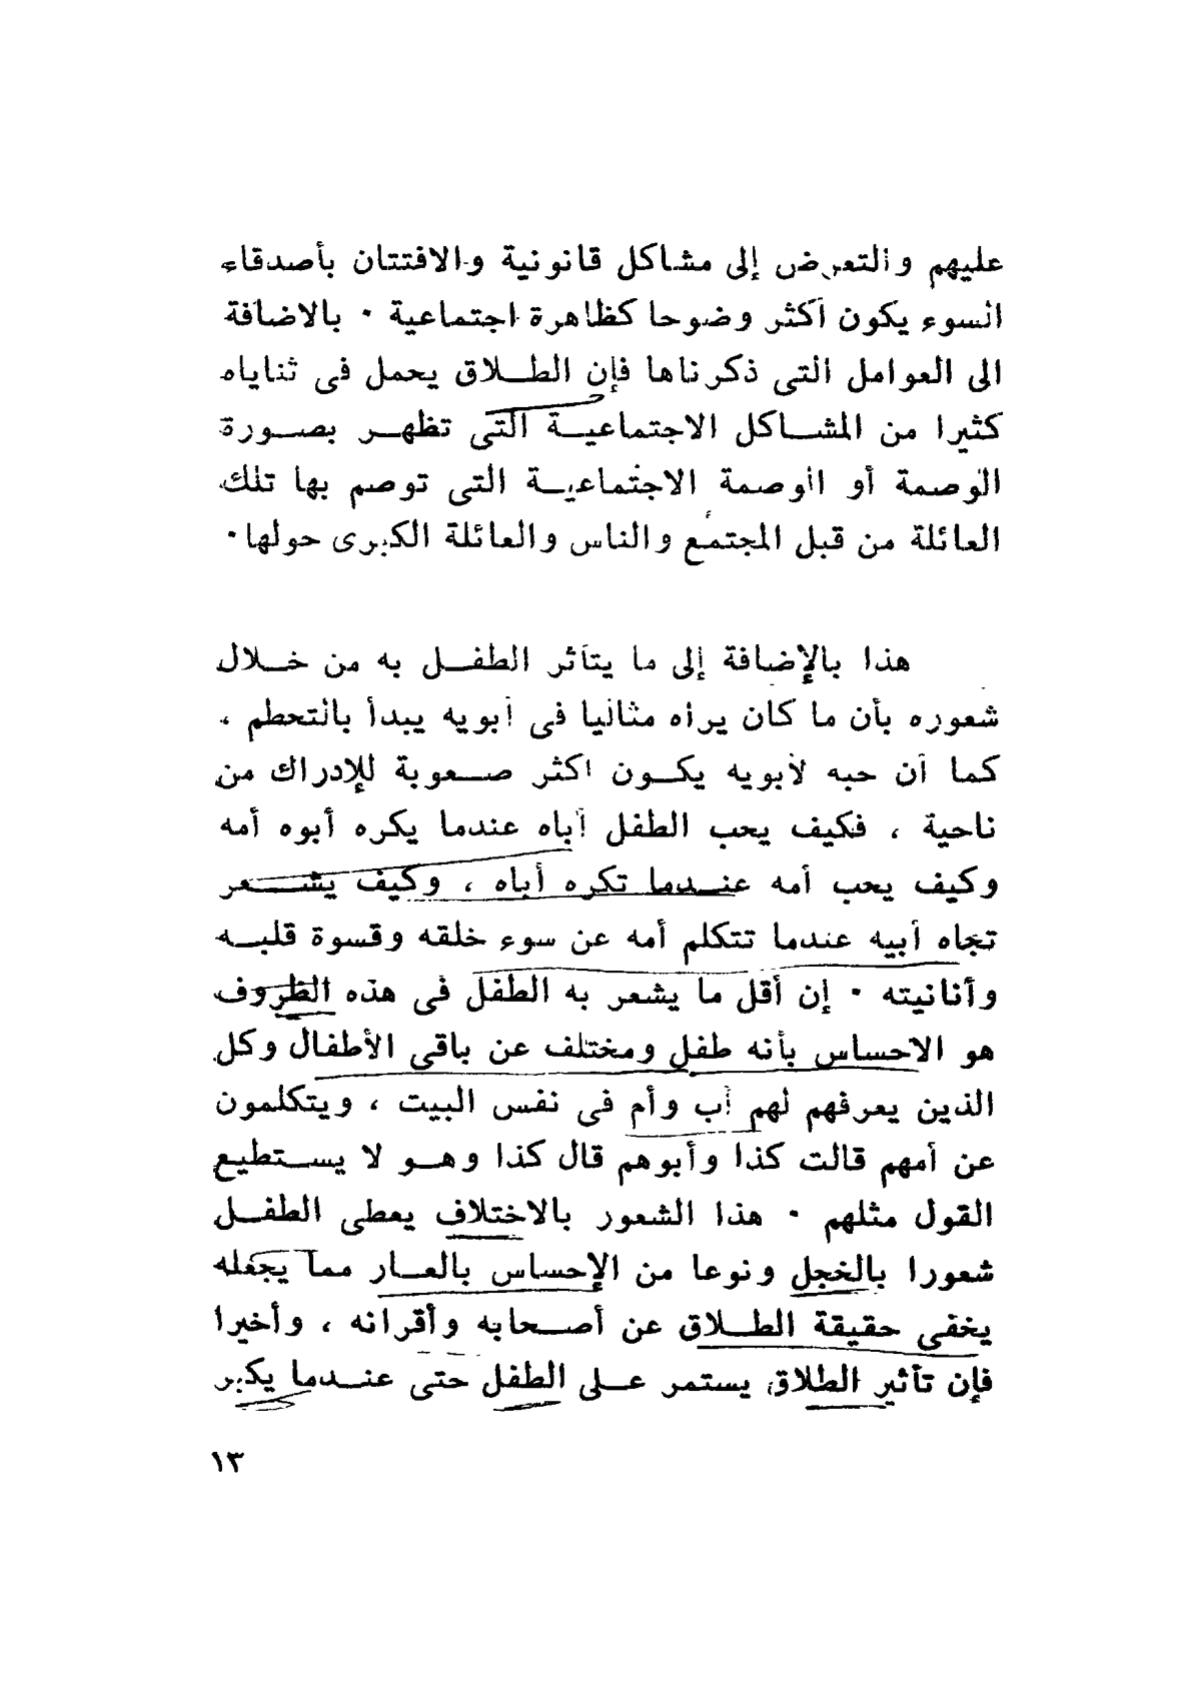 عليهم والتعرض إلى مشاكل قانونية والافتتان بأصدقاء
السوء يكون أكثر وضوحا كظاهرة اجتماعية ٠ بالاضافة
الى العوامل التى ذكرناها فإن الطلاق يحمل فى ثناياه
كثيرا من المشاكل الاجتماعية التى تظهر بصورة
الوصمة أو الوصمة الاجتماعية التى توصم بها تلك
العائلة من قبل المجتمع والناس والعائلة الكبرى حولها ٠
هذا بالإضافة إلى ما يتأثر الطفل به من خلال
شعوره بأن ما كان يراه مثاليا فى أبويه يبدأ بالتحطم ،
كما أن حبه لأبويه يكون اكثر صعوبة للإدراك من
ناحية ، فكيف يحب الطفل أباه عندما يكره أبوه أمه
وكيف يحب أمه عندما تكره أباه ، وكيف يشعر
تجاه أبيه عندما تتكلم أمه عن سوء خلقه وقسوة قلبه
وأنانيته ٠ إن أقل ما يشعر به الطفل فى هذه الظروف
هو الاحساس بأنه طفل ومختلف عن باقى الأطفال وكل
الذين يعرفهم لهم أب وأم فى نفس البيت ، ويتكلمون
عن أمهم قالت كذا وأبوهم قال كذا وهو لا يستطيع
القول مثلهم ٠ هذا الشعور بالاختلاف يعطى الطفل
شعورا بالخجل ونوعا من الإحساس بالعار مما يجعله
يخفى حقيقة الطلاق عن أصحابه وأقرانه ، وأخيرا
فإن تأثير الطلاق يستمر على الطفل حتى عندما يكبر
١٣